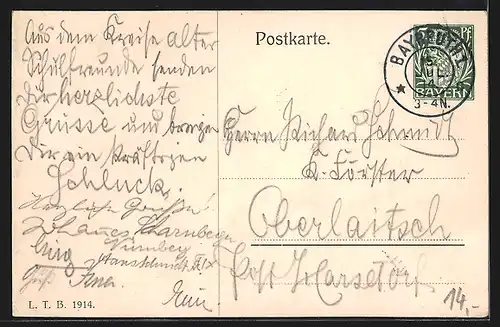 Aus dem Kreise alter
Schulfreunde senden
Dir herzlichste
Grüsse und bringen
Dir ein kräftigen
Schluck.
Herzliche Grüsse!
Johannes
Nürnberg
L. T. B. 1914.
Postkarte.
BAYREUTH
JUL.
3-4N.
Pf
BAYERN
Herrn Richard Schmidt
K. Förster
Oberlaitsch
Post Harsdorf
14,-